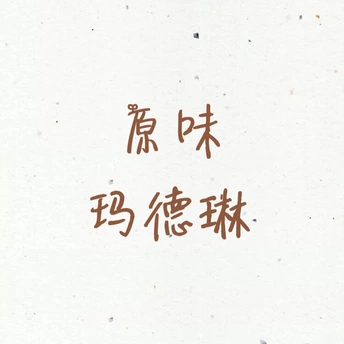 原味
玛德琳